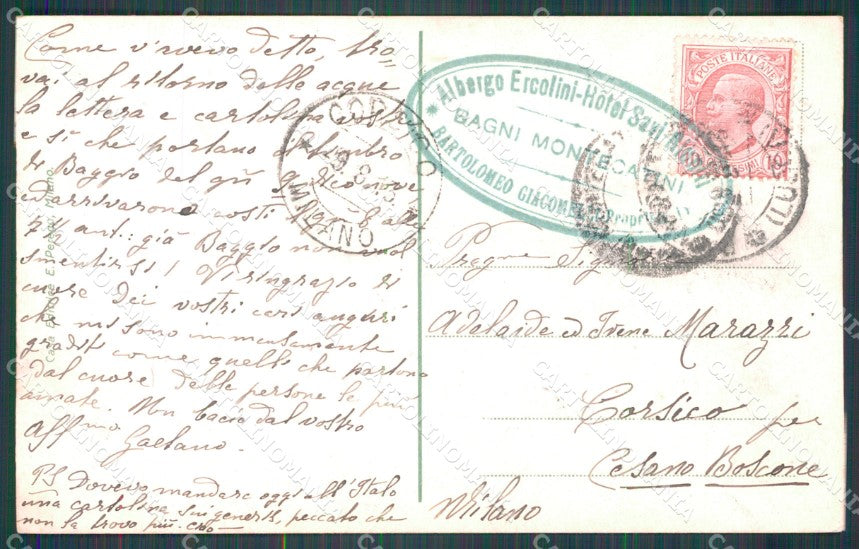 Come v'avevo detto, tro-
vai al ritorno delle acque
la lettera e cartolina vostr
e si che portano il timbro
di Baggio del giu
ed arrivarono costì
7½ ant: già Baggio non vuol
smentirsi! Vi ringrazio di
cuore dei vostri cari auguri
che mi sono immensamente
graditi come quelli che partono
dal cuore delle persone le più
amate. Un bacio dal vostro
Aff/mo Gaetano.
PS Dovevo mandare oggi all'Italo
una cartolina sui generis, peccato che
non la trovo più. ciao
Casa Editrice E. Peruzzi, Milano.
CORSICO
MILANO
Albergo Ercolini-Hotel Savi
BAGNI MONTECATINI
BARTOLOMEO GIACOMELLI Propriet
POSTE ITALIANE
CENTESIMI 10
Pregne Sig
Adelaide ed Irene Marazzi
Corsico per
Cesano Boscone
Milano
CARTOLINOMANIA